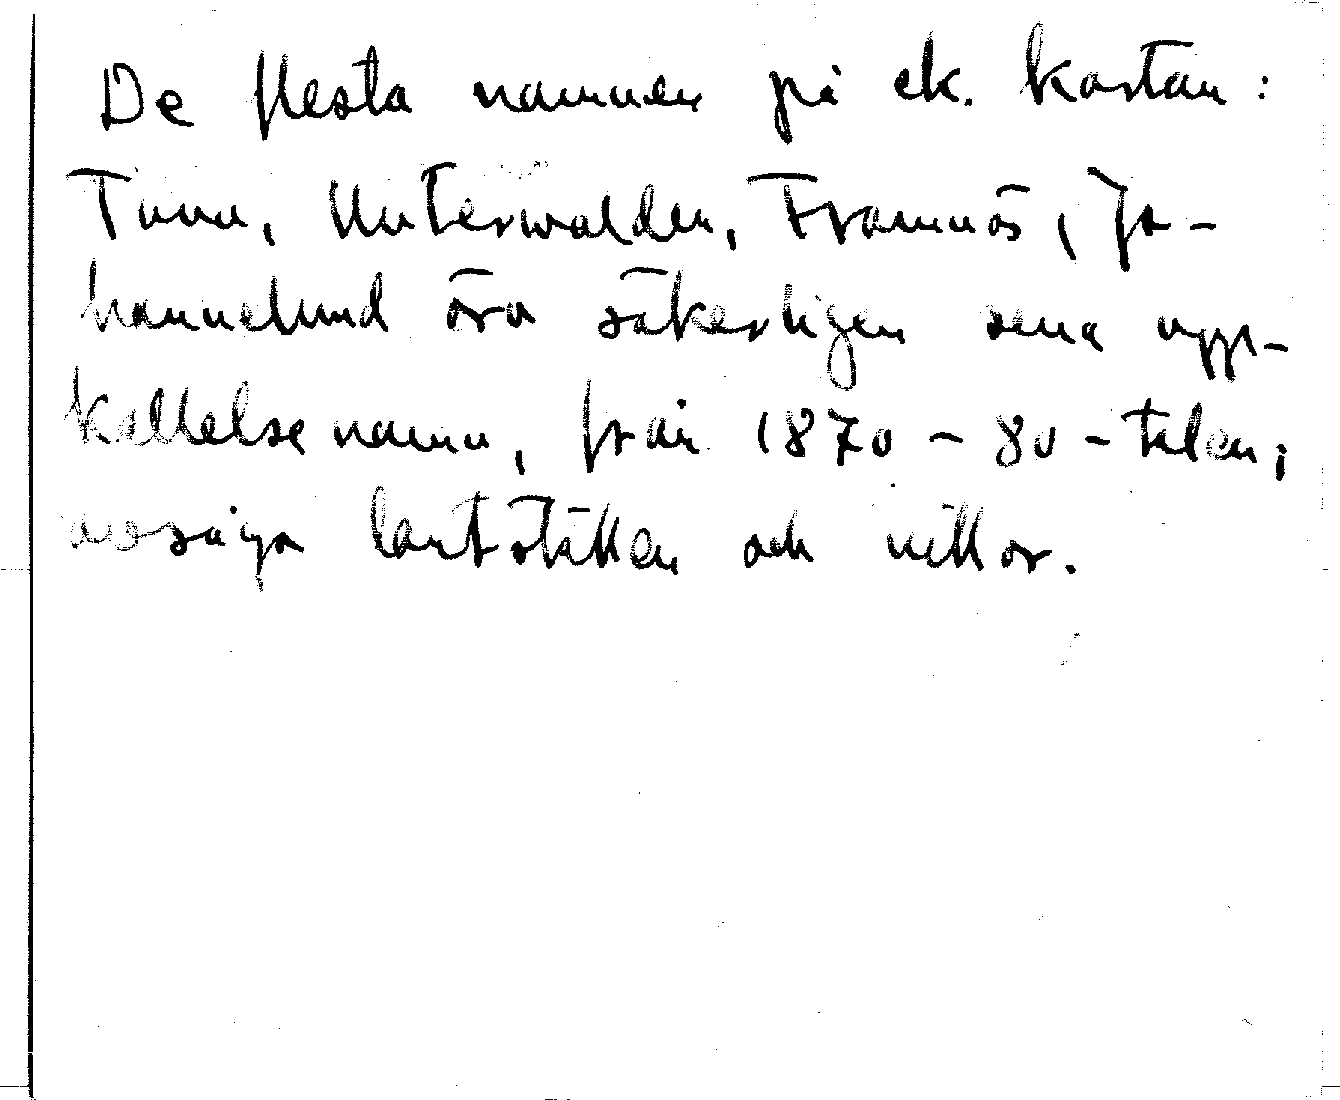 De flesta namnen på ek. kartan:
Tuna, Unterwalden, Framnäs, Jo-
hannelund äro säkerligen sena upp-
kallelsenamn, från 1870-80-talen,
avseende lantställen och villor.